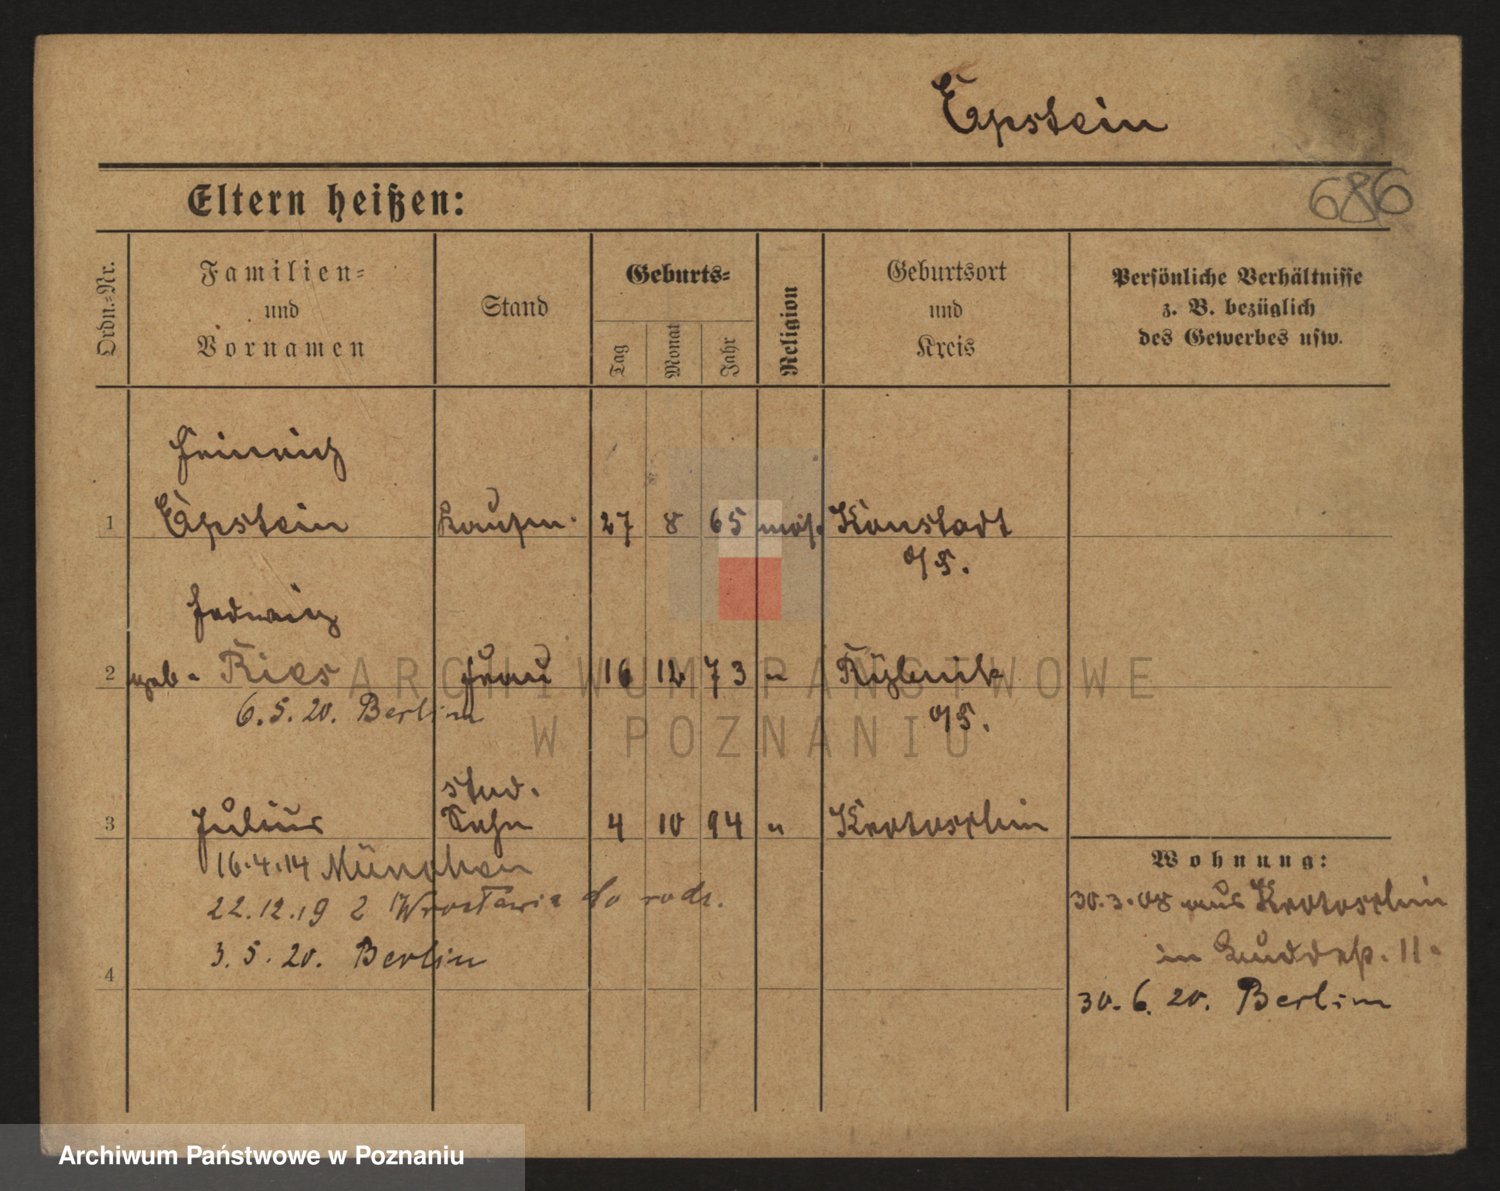 Epstein
686
Eltern heißen:
Ordn.=Nr.
Familien=
und
Vornamen
Stand
Geburts=
Tag
Monat
Jahr
Religion
Geburtsort
und
Kreis
Persönliche Verhältnisse
z. B. bezüglich
des Gewerbes usw.
Heinrich
1 Epstein Kaufm. 27 8 65 mos. Konstadt
O/S.
Hedwig
2 geb. Ries Frau 16 12 73 " Rybnik
O/S.
6.5.20. Berlin
stud.
3 Julius Sohn 4 10 94 " Krotoschin
16.4.14 München
22.12.19 z Wrocławia do rodz.
3.5.20. Berlin
4
Wohnung:
30.3.08 aus Krotoschin
in 11.
30.6.20. Berlin
ARCHIWUM PAŃSTWOWE
W POZNANIU
Archiwum Państwowe w Poznaniu